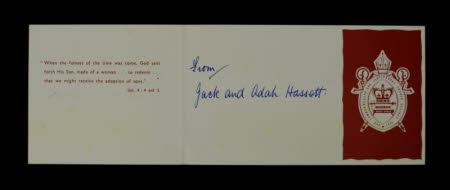 "When the fulness of the time was come, God sent
forth His Son, made of a woman to redeem
that we might receive the adoption of sons."
Gal. 4 : 4 and 5.
From
Jack and Adah Hassett.